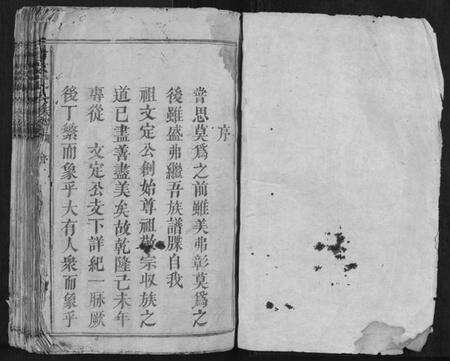 序
嘗思莫為之前雖美弗彰莫為之
後雖盛弗繼吾族譜牒自我
祖文定公創始尊祖敬宗收族之
道已盡善盡美矣故乾隆己未年
專從 文定公支下詳紀一脈厥
後丁繁而象乎大有人衆而象乎